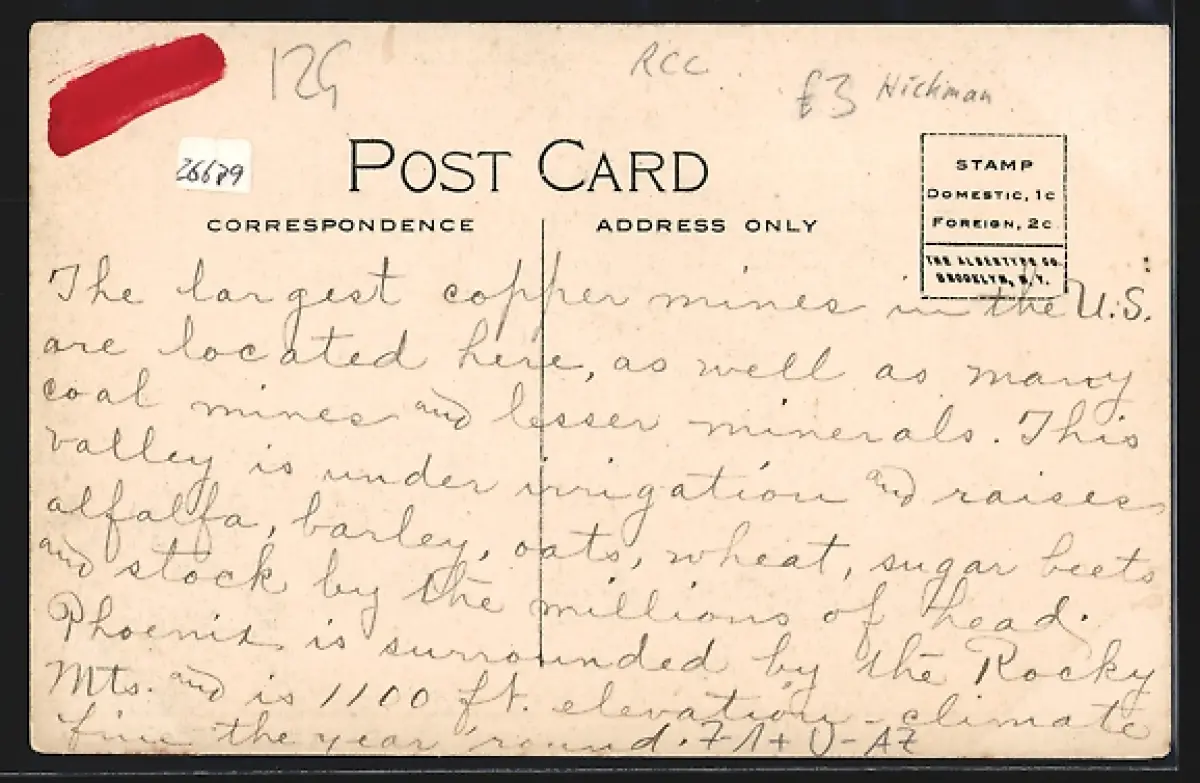 12G
RCC
£3 Hickman
26689
POST CARD
CORRESPONDENCE
ADDRESS ONLY
STAMP
DOMESTIC, 1c
FOREIGN, 2c
THE ALBERTYPE CO.
BROOKLYN, N.Y.
The largest copper mines in the U.S.
are located here, as well as many
coal mines and lesser minerals. This
valley is under irrigation and raises
alfalfa, barley, oats, wheat, sugar beets
and stock by the millions of head.
Phoenix is surrounded by the Rocky
Mts. and is 1100 ft. elevation – climate
fine the year 'round.